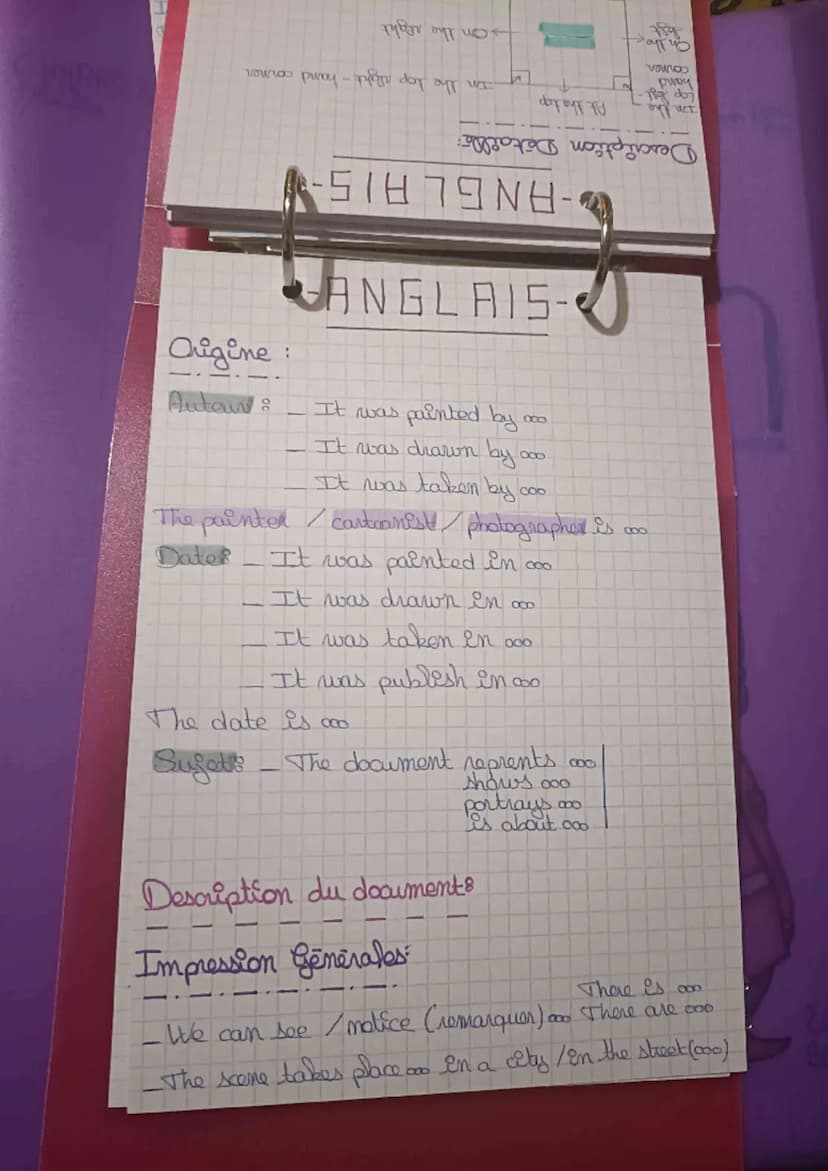 -ANGLAIS-
Description Détaillé:
In the top left-hand corner
At the top
In the top right-hand corner
On the left
On the right
-ANGLAIS-
Origine :
Auteur : - It was painted by ...
- It was drawn by ...
- It was taken by ...
The painter / cartoonist / photographer is ...
Date: - It was painted in ...
- It was drawn in ...
- It was taken in ...
- It was publish in ...
The date is ...
Sujet: - The document reprents ...
shows ...
portrays ...
is about ...
Description du document:
Impression Générales:
There is ...
- We can see / notice (remarquer) ... There are ...
- The scene takes place ... in a city / in the street (...)